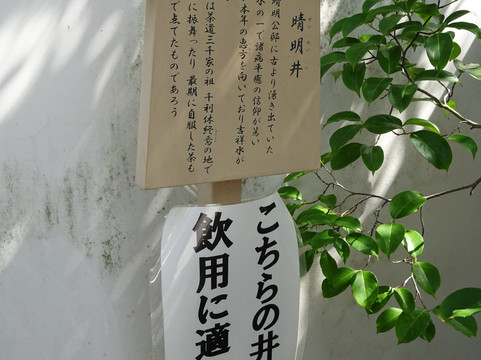 晴明井
晴明公邸に古より湧き出ていた
水の一で諸病平癒の信仰が篤い
本年の恵方を向いており吉祥水が
は茶道三千家の祖 千利休終焉の地で
に振舞ったり 最期に自服した茶も
で点てたものであろう
こちらの井
飲用に適